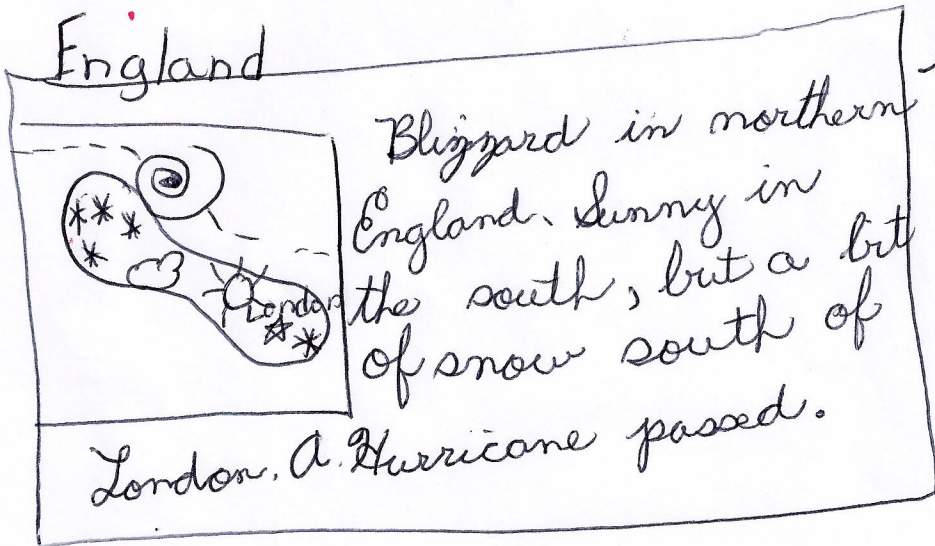 England
Blizzard in northern
England. Sunny in
London
the south, but a bit
of snow south of
London. A Hurricane passed.